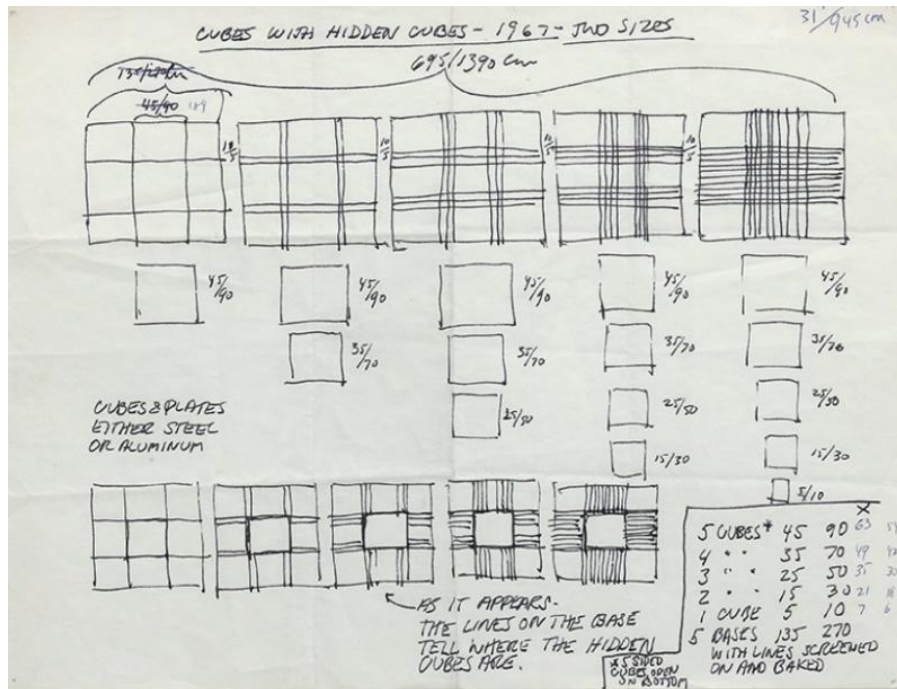 31/945 cm
CUBES WITH HIDDEN CUBES - 1967 - TWO SIZES
695/1390 cm
45/90
10/5
10/5
10/5
45/90
45/90
45/90
45/90
45/90
35/70
35/70
35/70
35/70
25/50
25/50
25/50
15/30
15/30
5/10
CUBES & PLATES
EITHER STEEL
OR ALUMINUM
AS IT APPEARS.
THE LINES ON THE BASE
TELL WHERE THE HIDDEN
CUBES ARE.
X
5 CUBES* 45 90 63
4 " " 35 70 49
3 " " 25 50 35
2 " " 15 30 21
1 CUBE 5 10 7 6
5 BASES 135 270
WITH LINES SCREENED
ON AND BAKED
*5 SIDED
CUBES OPEN
ON BOTTOM